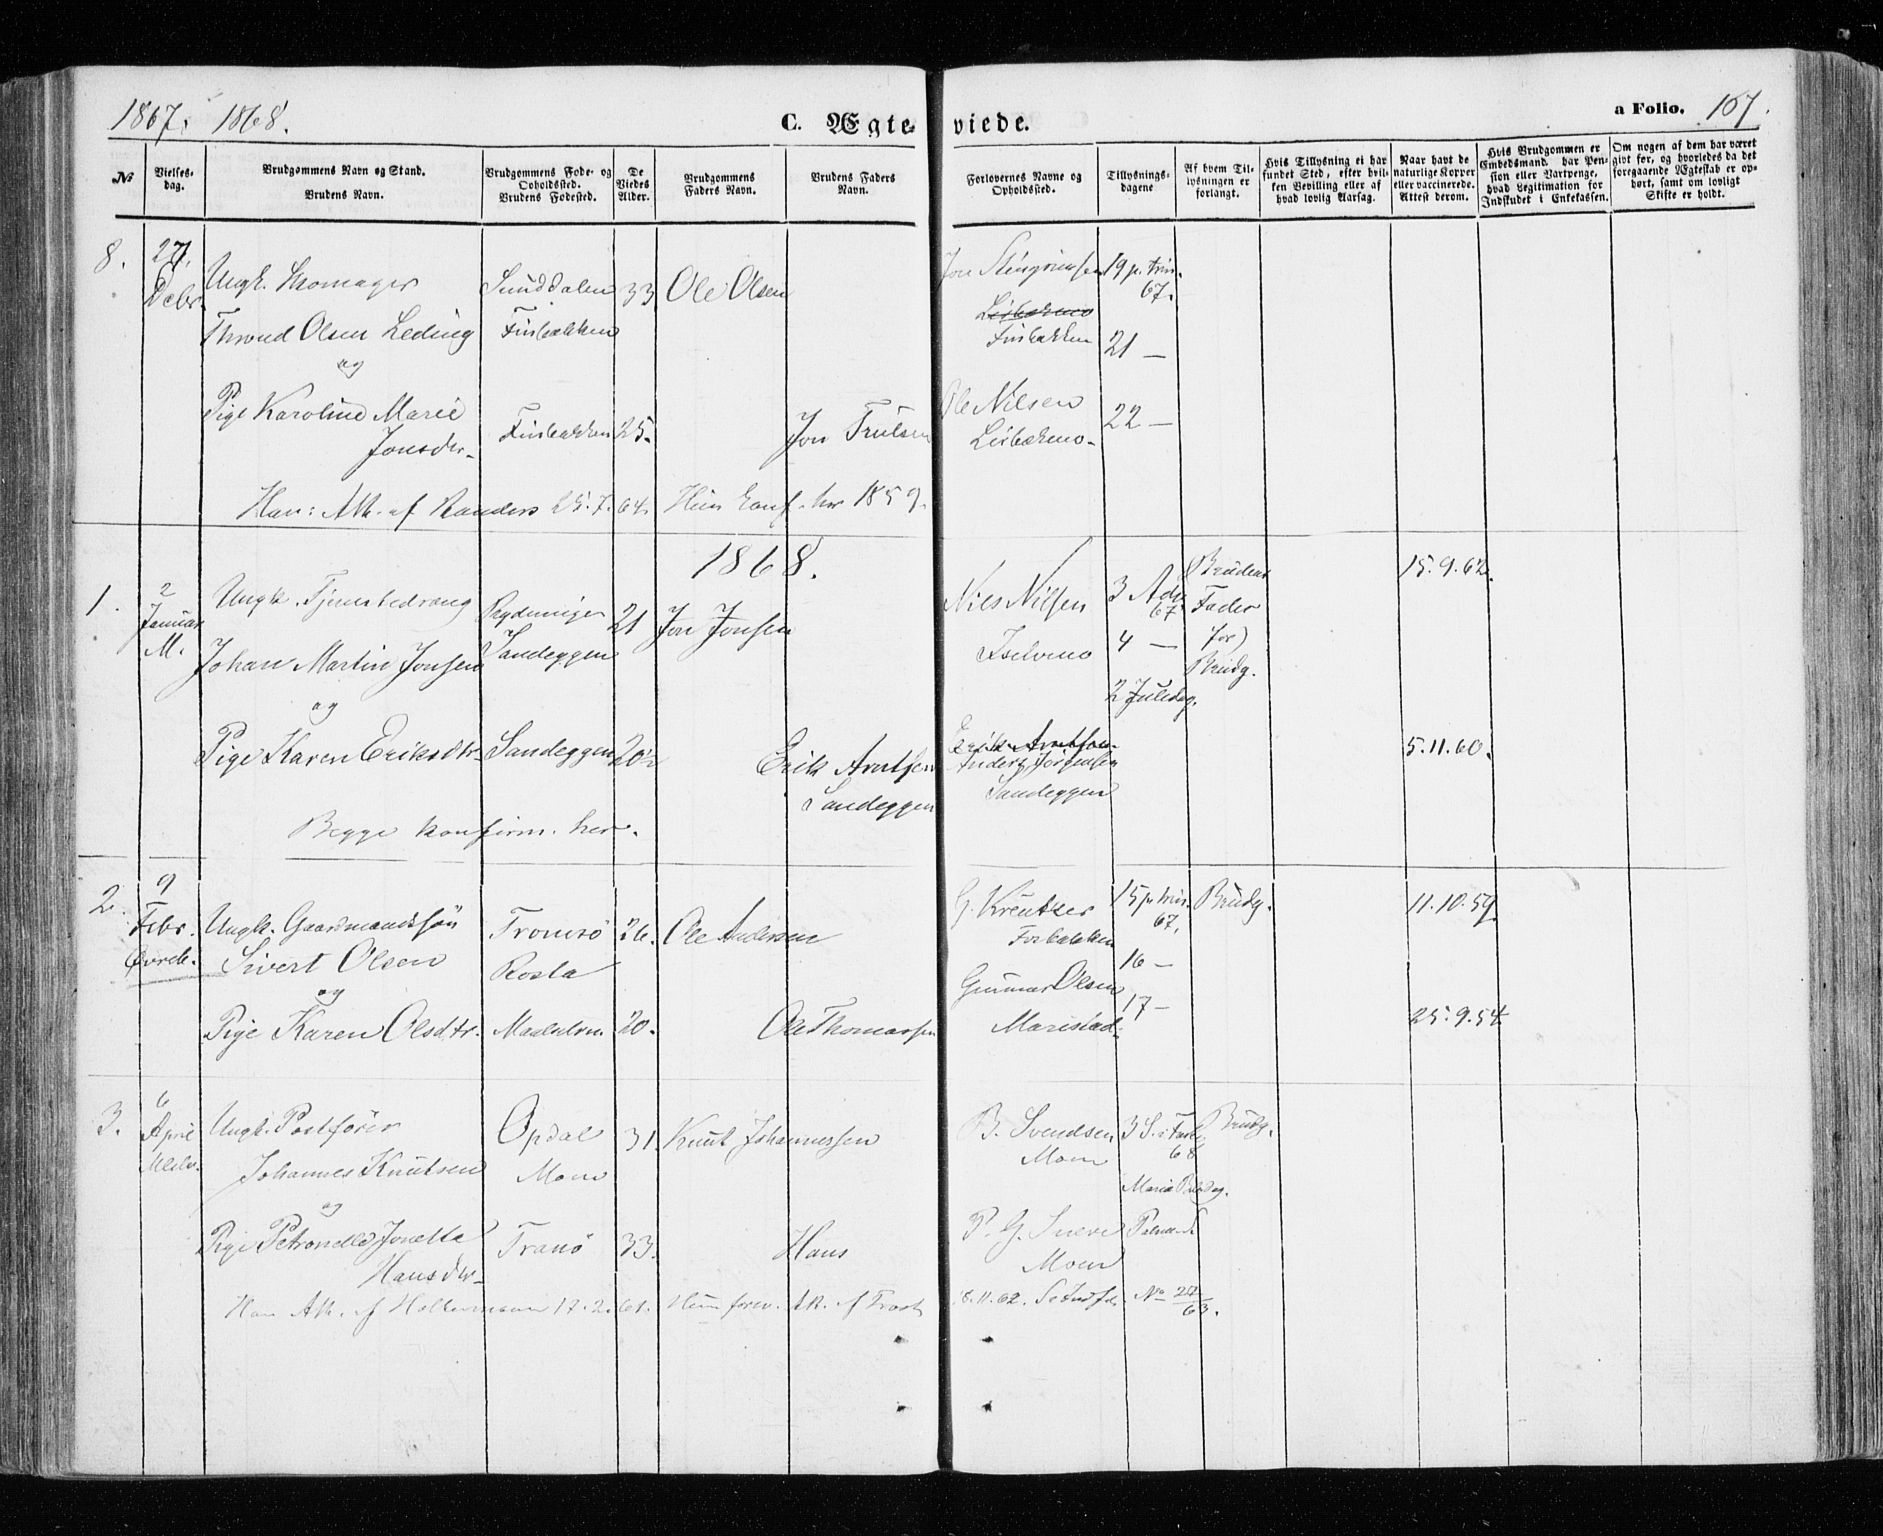 1867. 1868.
C. Ægteviede.
a Folio. 107.
No
Vielsesdag.
Brudgommens Navn og Stand.
Brudens Navn.
Brudgommens Føde- og Opholdssted.
Brudens Fødested.
De Viedes Alder.
Brudgommens Faders Navn.
Brudens Faders Navn.
Forlovernes Navne og Opholdssted.
Tillysningsdagene
Af hvem Tillysningen er forlangt.
Hvis Tillysning ei har fundet Sted, efter hvilken Bevilling eller af hvad lovlig Aarsag.
Naar havt de naturlige Kopper eller vaccinerede. Attest derom.
Hvis Brudgommen er Embedsmand, har Pension eller Vartpenge, hvad Legitimation for Indskudet i Enkekassen.
Om nogen af dem har været givt før, og hvorledes da det foregaaende Ægteskab er ophørt, samt om lovligt Skifte er holdt.
8. 27. Debr.
Ungk. Skomager Sunddalen 33 Ole Olsen Jon Steingrimsen 19 p. trin. 67.
Thrond Olsen Leding Finbakken Finbakken 21 —
og
Pige Karoline Marie Finbakken 25. Jon Trulsen Ole Nilsen 22 —
Jonsdtr.
Han: Att. af Randers 25.7.64. Hun konf. her 1859.
1868.
1. 2 Januar M.
Ungk. 21 Jon Jonsen Nils Nilsen 3 Adv. 67 Brudens Fader for Brudg. 15.9.62.
Johan Martin Jonsen Sandeggen 4 —
og 2 Juledag.
Pige Karen Eriksdtr. Sandeggen 20½ Erik Arntsen Erik Arntsen 5.11.60.
Anders Jörgensen
Sandeggen Sandeggen
Begge konfirm. her.
2. 9 Febr. Øvrb.
Ungk. Gaardmandssön Tromsö 26. Ole Andersen G. Kreutzer 15 p. trin. 67. Brudg. 11.10.59
Sivert Olsen Rosta 16 —
og Gunnar Olsen 17 —
Pige Karen Olsdtr. Maalselven 20. Ole Thomassen 25.9.54
3. 6 April
Ungk. Postfører Opdal 31. Knut Johannessen B. Svendsen 3 S. i Faste 68 Brudg.
Johannes Knutsen Moen Moen
og Maria Bebdag.
Pige Petronelle Jonetta Tranö 33. Hans P. G. Moen
Hansdtr.
Han Att. af 17.2.61. Hun Att. af 18.11.62. No